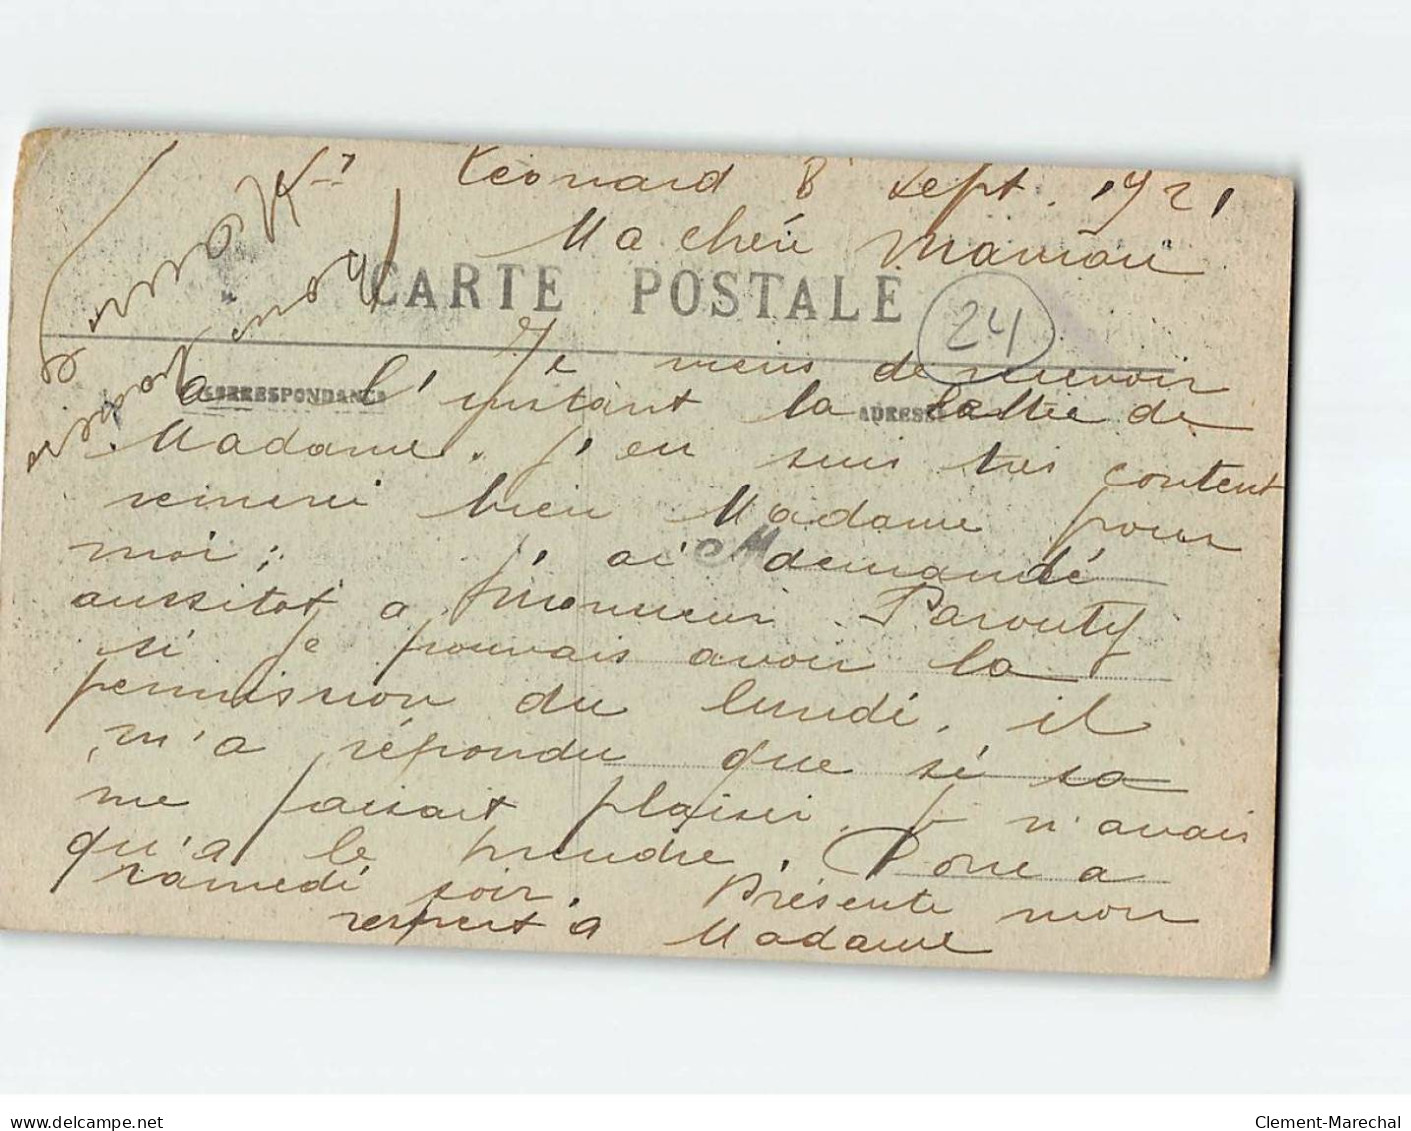 St Léonard 8 Sept. 1921
Ma chérie
CARTE POSTALE
24
Je viens de recevoir
CORRESPONDANCE
ADRESSE
a l'instant la lettre de
Madame. J'en suis très content
remerci bien Madame pour
moi; j'ai demandé
aussitot a monsieur Parouty
si je pouvais avoir la
permission du lundi, il
m'a répondu que si sa
me faisait plaisir, je n'avais
qu'a le prendre. Donc a
samedi soir. Présente mon
respect a Madame
Clement-Marechal
www.delcampe.net